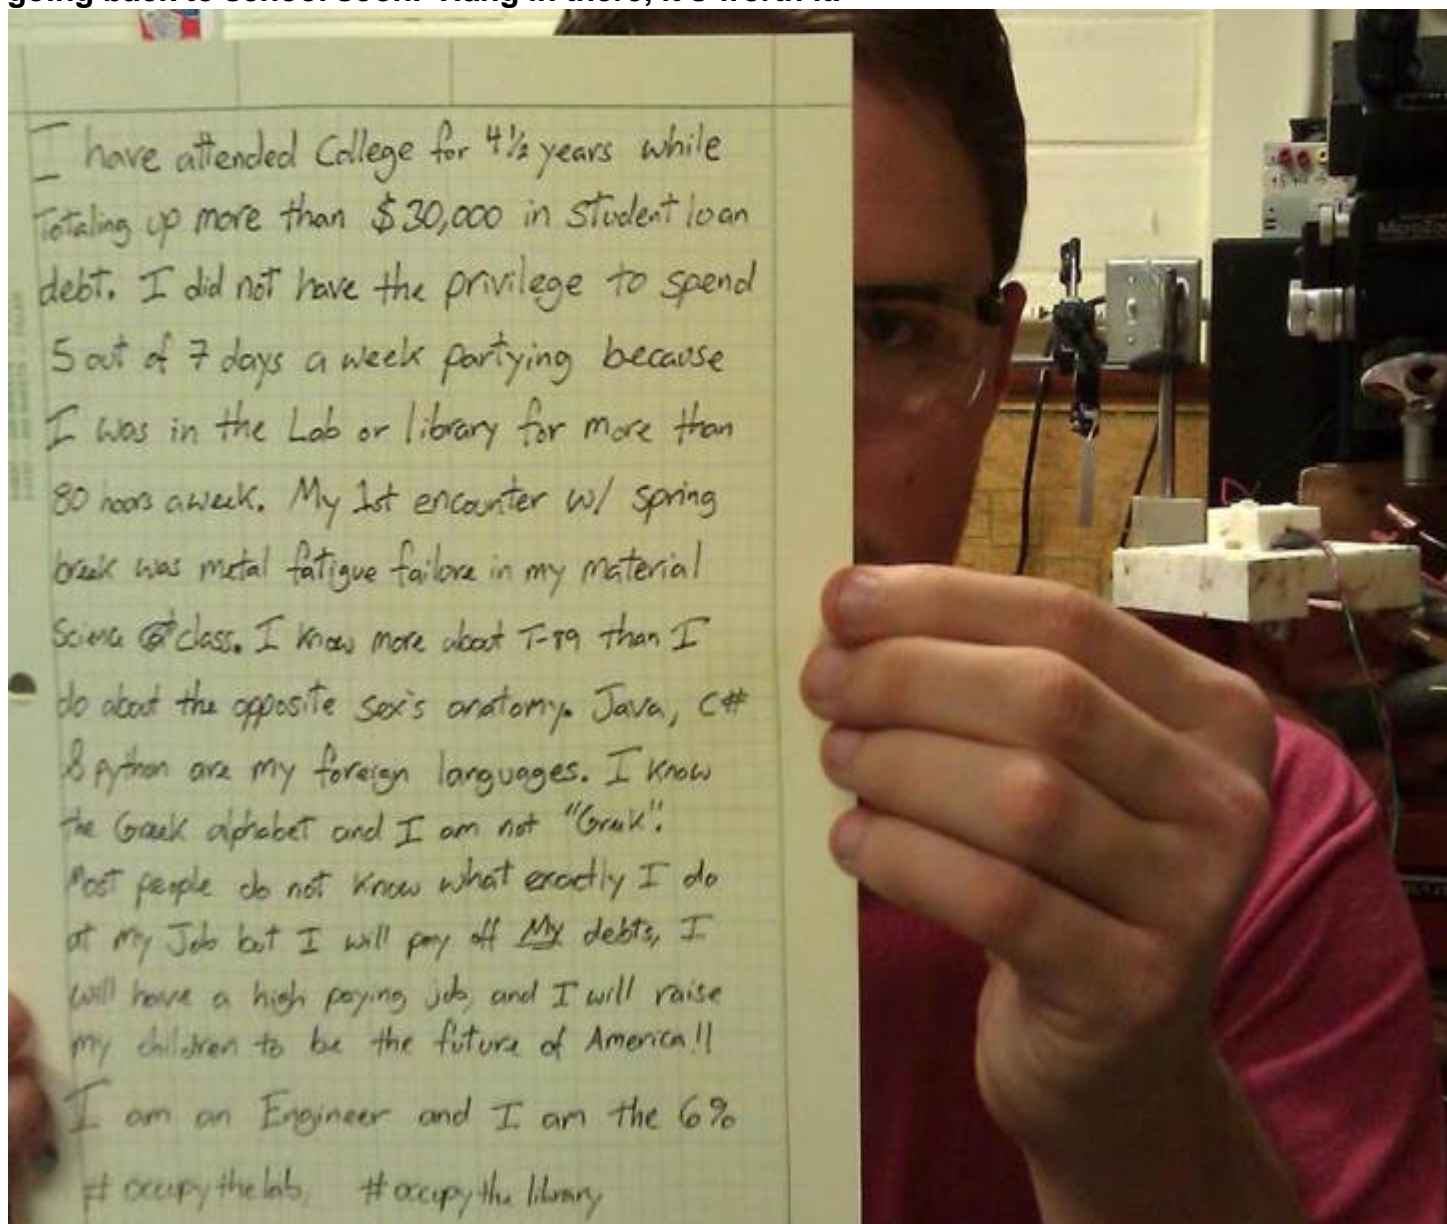 going back to school soon. Hang in there, it's worth it.
I have attended College for 4½ years while
Totaling up more than $30,000 in Student loan
debt. I did not have the privilege to spend
5 out of 7 days a week partying because
I was in the Lab or library for more than
80 hours a week. My 1st encounter w/ spring
break was metal fatigue failure in my material
Science class. I know more about T-89 than I
do about the opposite sex's anatomy. Java, C#
& python are my foreign languages. I know
the Greek alphabet and I am not "Greek".
Most people do not know what exactly I do
at my Job but I will pay off My debts, I
will have a high paying job, and I will raise
my children to be the future of America!!
I am an Engineer and I am the 6%
# occupy the lab, # occupy the library